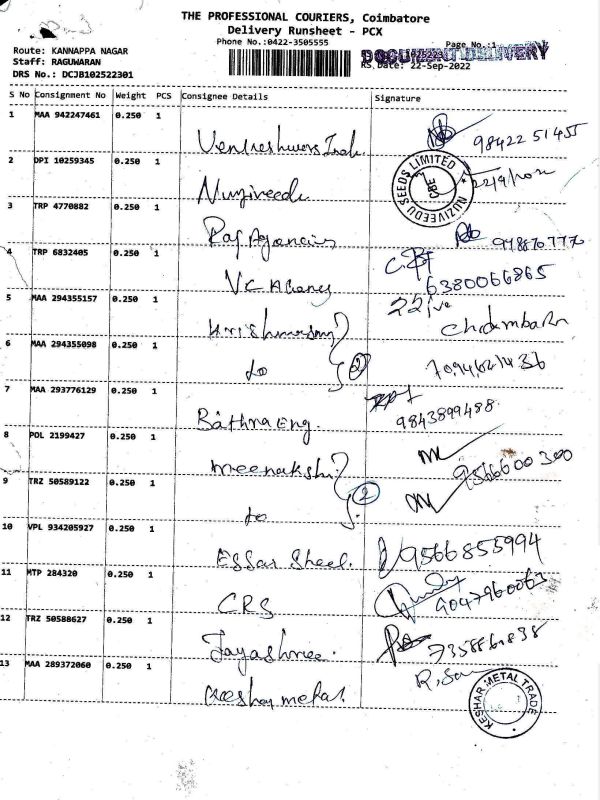 THE PROFESSIONAL COURIERS, Coimbatore
Delivery Runsheet - PCX
Phone No.:0422-3505555
Page No.:1
DOCUMENT DELIVERY
Route: KANNAPPA NAGAR
Staff: RAGUWARAN
RS Date: 22-Sep-2022
DRS No.: DCJB102522301
S No Consignment No Weight PCS Consignee Details Signature
1 MAA 942247461 0.250 1
98422 51455
2 DPI 10259345 0.250 1 Nuziveedu
NUZIVEEDU SEEDS LIMITED
CBE
3 TRP 4770882 0.250 1 Raj Agencies
4 TRP 6832405 0.250 1
6380066865
5 MAA 294355157 0.250 1
6 MAA 294355098 0.250 1 to 2
7 MAA 293776129 0.250 1 Bathra Eng.
9843899488
8 POL 2199427 0.250 1 Meenakshi
9566600300
9 TRZ 50589122 0.250 1 to 2
10 VPL 934205927 0.250 1 Essar Sheel.
9566855994
11 MTP 284320 0.250 1 CRS
9047960063
12 TRZ 50588627 0.250 1 Jayashree.
13 MAA 289372060 0.250 1 Keshar metal
KESHAR METAL TRADE